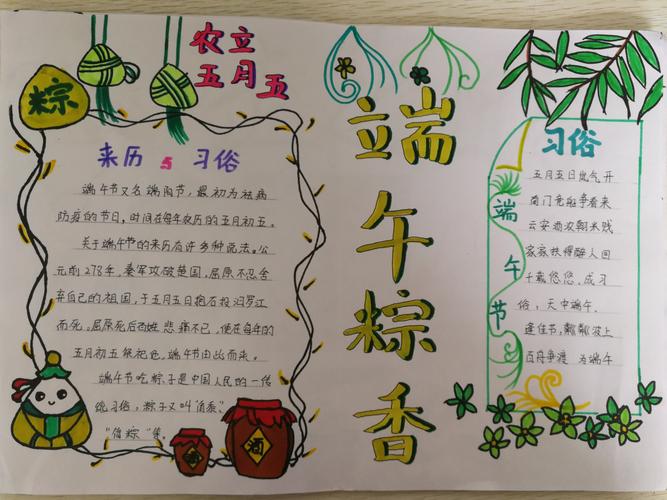 粽
农立
五月五
来历与习俗
端午节又名端阳节,最初为祛病
防疫的节日,时间在每年农历的五月初五。
关于端午节的来历有许多种说法。公
元前278年,秦军攻破楚国,屈原不忍舍
弃自己的祖国,于五月五日抱石投汨罗江
而死。屈原死后百姓悲痛不已,便在每年的
五月初五祭祀他。端午节由此而来。
端午节吃粽子是中国人民的一传
统习俗,粽子又叫"角黍"、
"筒粽"等。
酒
端午粽香
习俗
端午节
五月五日 气开
南门竞船争看来
云安酒浓麹米贱
家家扶得醉人回
千载悠悠,成习
俗,天中端午。
逢佳节,粼粼波上
百舟争渡 为端午